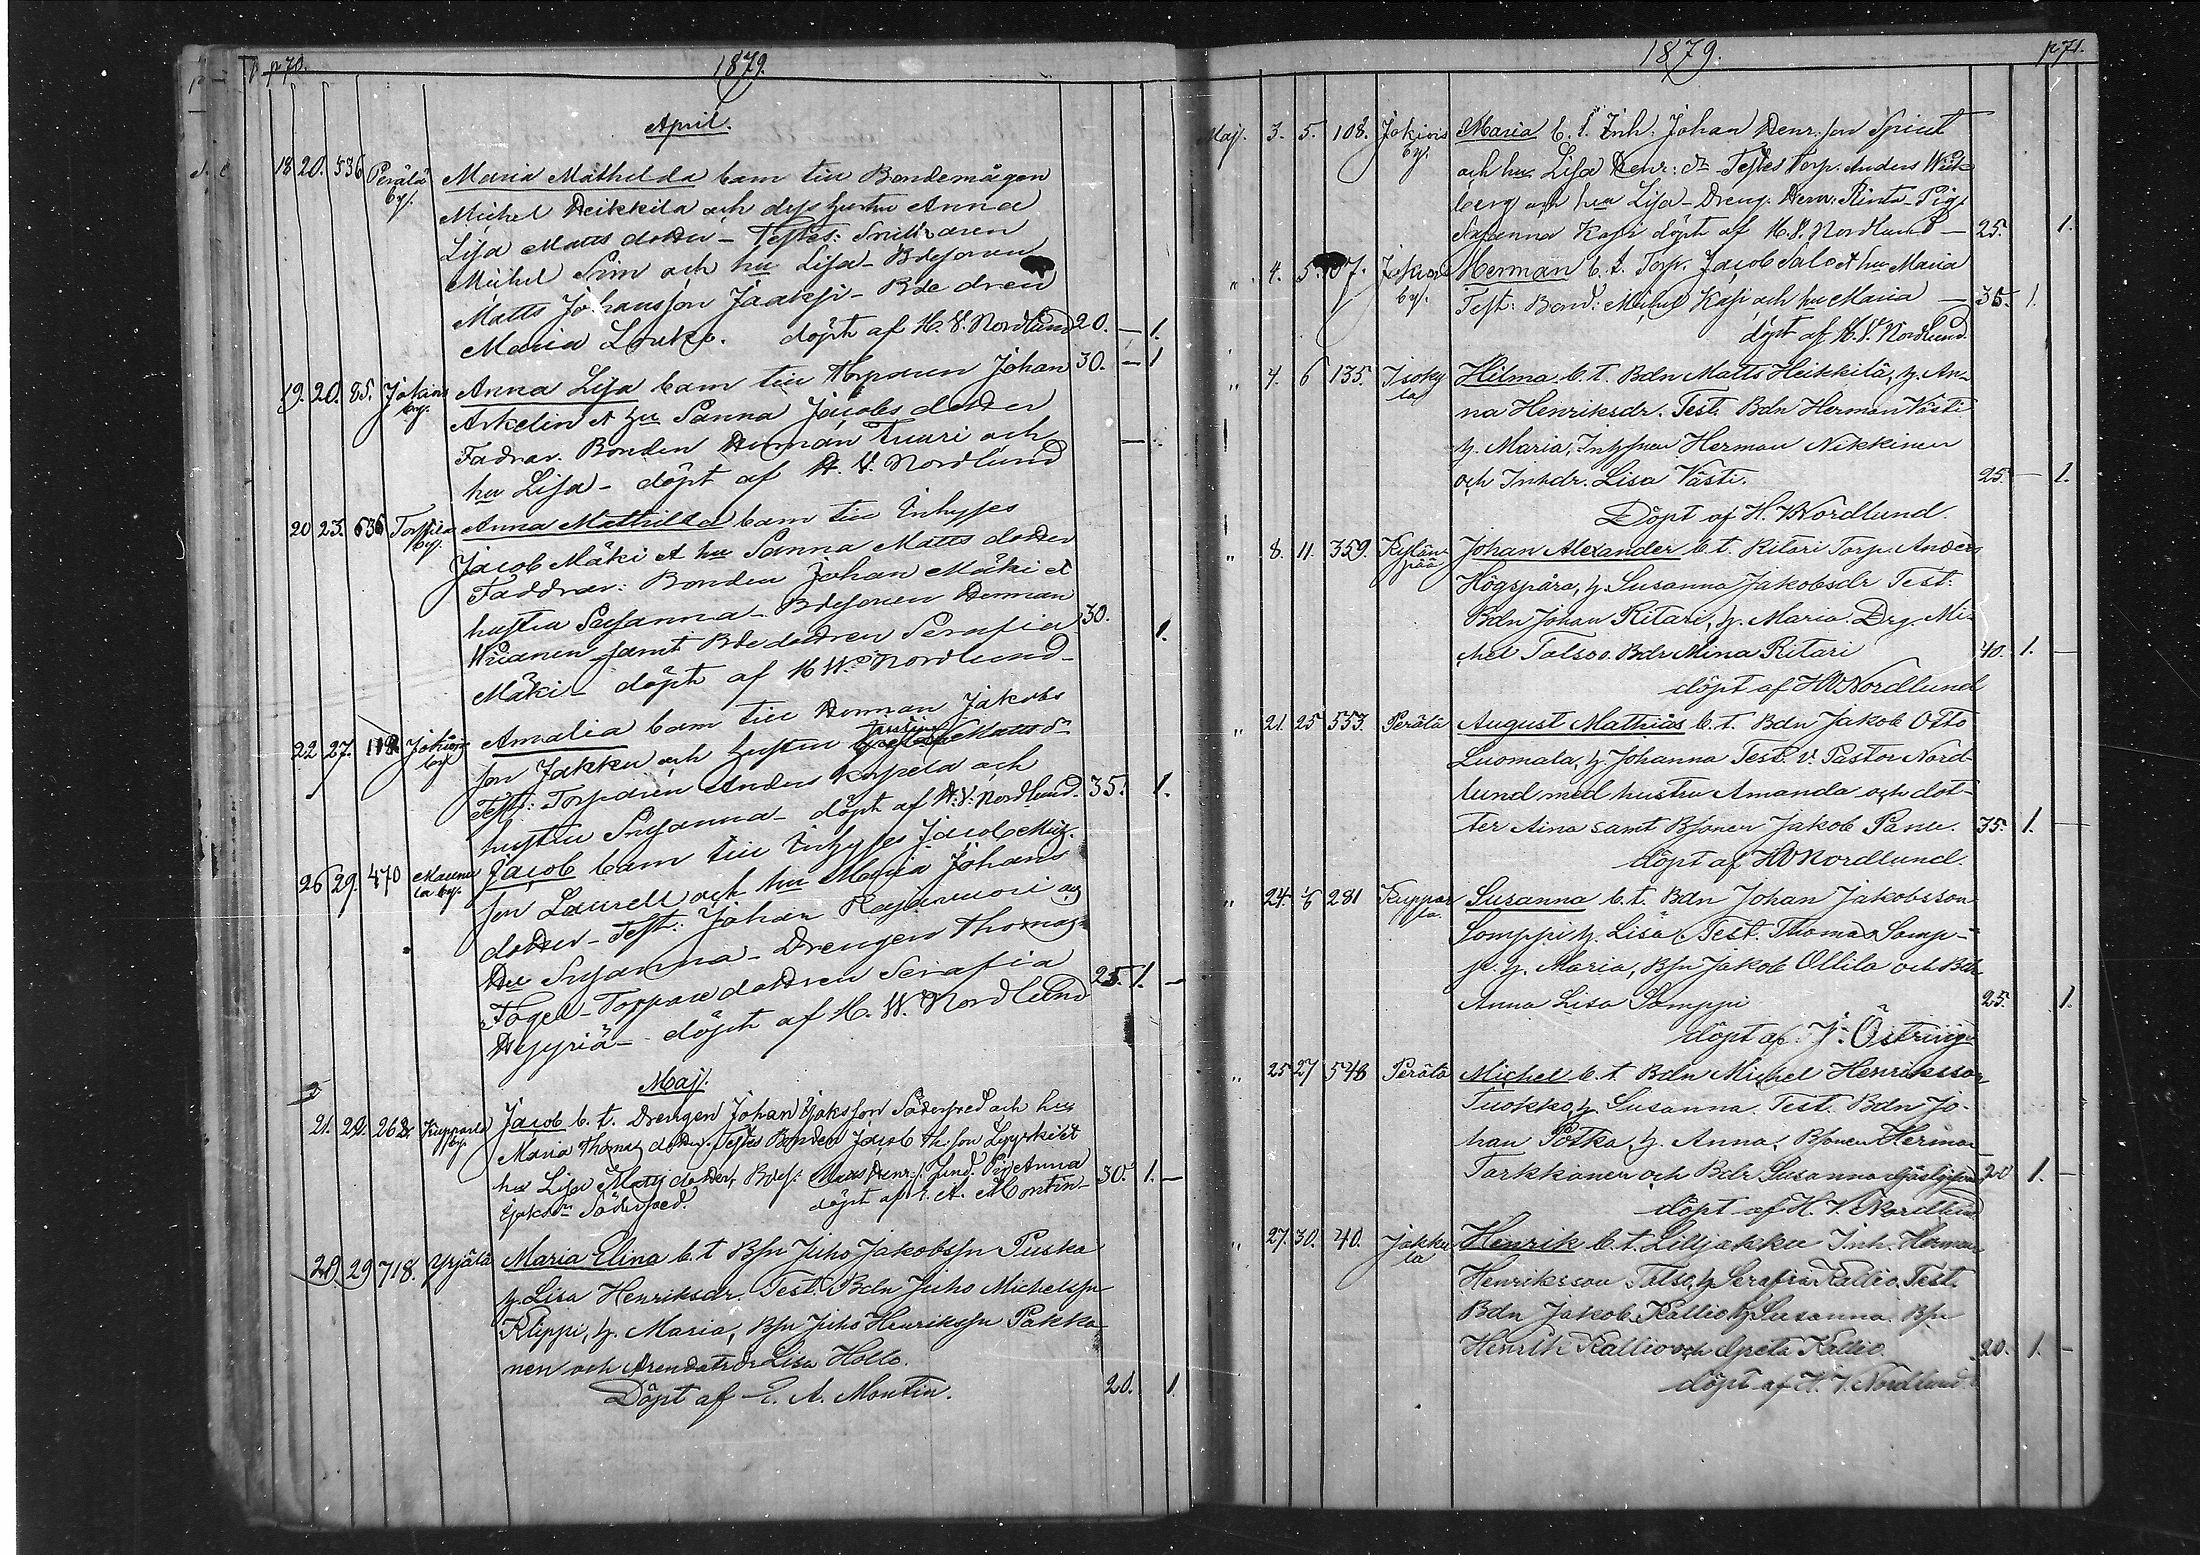 p 70.
1879.
April.
18 20. 536 Perälä by. Maria Mathilda barn till Bondemågen
Michel Heikkilä och dess hustru Anna
Lisa Matts dotter – Testes:
Michel Sim och hu Lisa – Bdesonen
Matts Johansson Jaaksi – Bde dren
Maria Louko. döpt af H. V. Nordlund 20. – 1.
19. 20. 85. Jokiois by. Anna Lisa barn till Torparen Johan 30. – 1
Arkelin et hu Sanna Jacobs dotter
Fadrar. Bonden Herman Tuuri och
hu Lisa – döpt af H. V. Nordlund
20 23. 636 by. Anna Mathilda barn till Inhyses
Jacob Mäki et hu Sanna Matts dotter
Faddrar: Bonden Johan Mäki et
hustru Susanna – Bdesonen Herman
samt Bdedotdren Serafia 30. 1.
Mäki – döpt af H W. Nordlund
22 27. 118. Jokiois by Amalia barn till Herman Jakobs
son Jakku och hustru Justina Matts dr
Test: Torparen Anders Korpela och
hustru Susanna – döpt af H. V. Nordlund. 35. 1.
26 29. 470 Maunula by. Jacob barn till Inhyses Jacob Mich.
son Laurell och hu Maria Johans
dotter – Test: Johan Rajamäki och
Hu Susanna – Drengen Thomas
– Torparedotdren Serafia 25. 1. –
Hyyriä – döpt af H. W. Nordlund
Maj.
21. 22. 262. Kuppala by. Jacob b. t. Drengen Johan Isaksson Södersved och hu
Maria Thomas dotter. Testes Bonden Jacob Th. son et
hu Lisa Matts dotter, Bdes. Matts Henr: s. Pig. Anna 30. 1. –
Isaksdr döpt af E. A. Montin
29 29 718. Yrjälä Maria Elina b. t Bsn Juho Jakobssn Puska
h. Lisa Henriksdr. Test. Bdn Juho Michelssn
Klippi, h. Maria, Bsn Juho Henrikssn Pakka
nen och Arendatsdr Lisa Hollo.
Döpt af E. A. Montin. 20. 1.
1879.
p 71.
Maj. 3. 5. 108. Jokiois by. Maria b. t. Inh. Johan Henr. son
och hu Lisa Henr: dr Testes Torp. Anders Wick-
berg och hu Lisa – Dreng. Herm: Rinta – Pig.
Susanna Kasi döpt af H. V. Nordlund – 25. 1.
" 4. 5. 107. Jokiois by. Herman b. t. Torp. Jacob Salo et hu Maria
Test: Bond: Michel Kasi och hu Maria – 35. 1.
döpt af H. V. Nordlund.
" 4. 6 135. Isoky la Hilma b. t. Bdn Matts Heikkilä, h. An-
na Henriksdr. Test. Bdn Herman Västi
h. Maria, Herman Nikkinen
och Inhdr. Lisa Västi. 25. – 1.
Döpt af H. V. Nordlund.
" 8. 11. 359. Kylän- pää Johan Alexander b. t. Ritari Torp. Anders
Högspåra, h Susanna Jakobsdr Test:
Bdn Johan Ritari, h. Maria. Drg. Mi-
chel Talsoo. Bdr Mina Ritari 40. 1. –
döpt af H W Nordlund
" 21. 25 553. Perälä August Mathias b. t. Bdn Jakob Otto
Luomala, h. Johanna Test. V. Pastor Nord-
lund med hustru Amanda och dot-
ter Aina samt Bsonen Jakob Panu. 35. 1. –
döpt af HW Nordlund.
" 24. 1/6 281 Kuppar la. Susanna b. t. Bdn Johan Jakobsson
Somppi h. Lisa. Test. Thomas Somp-
pi. h. Maria, Bsn Jakob Ollila och Bdr
Anna Lisa Somppi 25. 1.
döpt af J. Östring
" 25 27 548 Perälä Michel b. t. Bdn Michel Henriksson
Tuokko, h Susanna. Test. Bdn Jo-
han Potka, h. Anna, Bsonen Herman
Tarkkanen och Bdr Susanna 20 1. –
döpt af H. V. Nordlund
" 27. 30. 40. Jakku la Henrik b. t. Lilljakku Inh. Herman
Henriksson Talso, h Serafia Kallio. Test.
Bdn Jakob Kallio h Susanna. Bsn
Henrik Kallio och Greta Kallio. 20. 1. –
döpt af H. V. Nordlund.